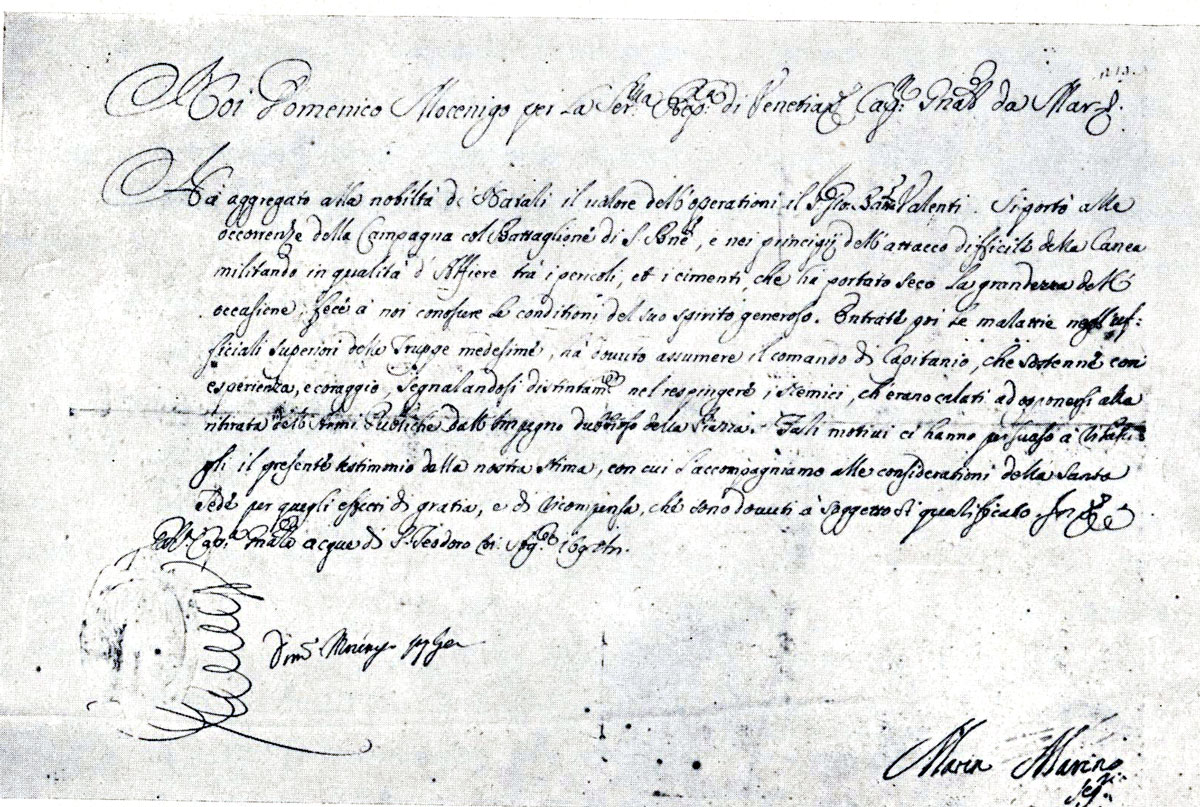 Noi Domenico Mocenigo per la Ser.ma Rep.ca di Venetia Cap.n Gnal da Mar
Ha aggregato alla nobiltà de Natali il valore dell'operationi il S.r Gio: Batta Valenti. Si portò alle
occorrenze della Campagna col Battaglione di S. Sne, e nei principij dell'attacco difficile della Canea
militando in qualità d'Alfiere trà i pericoli, et i cimenti, che hà portato seco la grandezza dell'
occasione, fece à noi conoscere le conditioni del suo spirito generoso. Entrate poi le malattie negl'uf-
ficiali superiori delle Truppe medesime, hà dovuto assumere il comando di Capitanio, che sostenne con
esperienza, e coraggio, segnalandosi distintam.te nel respingere i Nemici, ch'erano calati ad opponersi alla
ritirata dell'Armi Publiche dall'impegno dubbioso della Piazza. Tali motivi ci hanno persuaso à
gli il presente testimmio della nostra stima, con cui l'accompagniamo alle considerationi della Santa
Sede per quegli effetti di gratia, e di ricompensa, che sono dovuti à soggetto sì qualificato
Dalla Cap.a Gnal acque di S. Teodoro
Marin Marino
Seg.rio